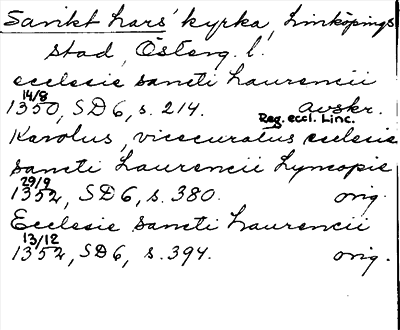 Sankt Lars' kyrka, Linköpings
stad, Österg. l.
ecclesie sancti Laurencii
14/8
1350, SD 6, s. 214. avskr.
Reg. eccl. Linc.
Karolus, vicecuratus ecclesie
sancti Laurencii Lyncopie
29/9
1352, SD 6, s. 380. orig.
Ecclesie sancti Laurencii
13/12
1352, SD 6, s. 394. orig.